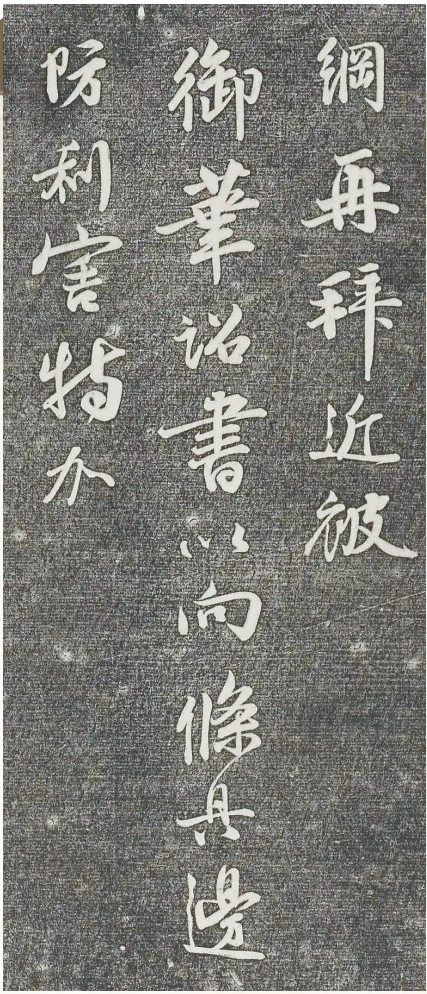 綱再拜近被
御華詔書以向條具邊
防利害特加